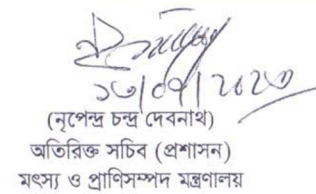 ১৩/০৭/২০২৩
(নৃপেন্দ্র চন্দ্র দেবনাথ)
অতিরিক্ত সচিব (প্রশাসন)
মৎস্য ও প্রাণিসম্পদ মন্ত্রণালয়